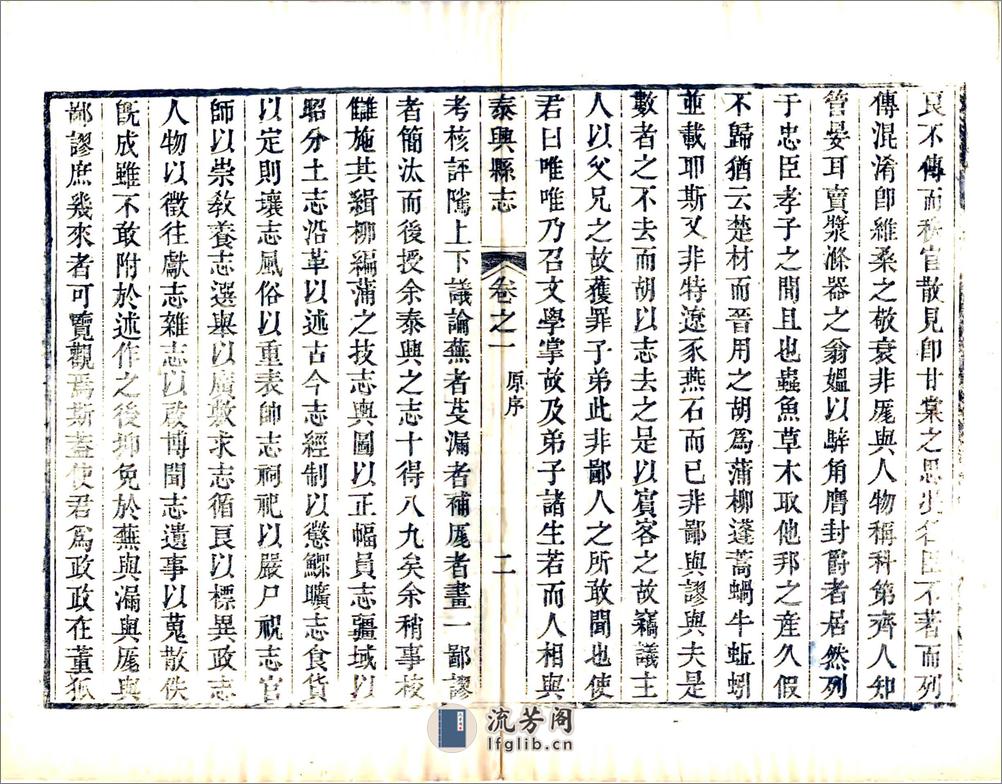 良不傳而稗官散見卽甘棠之思出名臣不著而列
傳混淆卽維桑之敬衰非厖與人物稱科第齊人知
管晏耳賣漿滌器之翁媼以騂角膺封爵者居然列
于忠臣孝子之間且也蟲魚草木取他邦之産久假
不歸猶云楚材而晉用之胡爲蒲柳蓬蒿蝸牛蚯蚓
並載耶斯又非特遼豕燕石而已非鄙與謬與夫是
數者之不去而胡以志去之是以賓客之故竊議主
人以父兄之故獲罪子弟此非鄙人之所敢聞也使
君曰唯唯乃召文學掌故及弟子諸生若而人相與
泰興縣志 卷之一 原序 二
考核評隲上下議論蕪者芟漏者補厖者畫一鄙謬
者簡汰而後授余泰興之志十得八九矣余稍事校
讎施其緝柳編蒲之技志輿圖以正幅員志疆域以
昭分土志沿革以述古今志經制以懲鰥曠志食貨
以定則壤志風俗以重表帥志祠祀以嚴尸祝志官
師以崇敎養志選舉以廣敷求志循良以標異政志
人物以徵往獻志雜志以啟博聞志遺事以蒐散佚
旣成雖不敢附於述作之後抑免於蕪與漏與厖與
鄙謬庶幾來者可覽觀焉斯葢使君爲政政在董狐
流芳阁
lfglib.cn